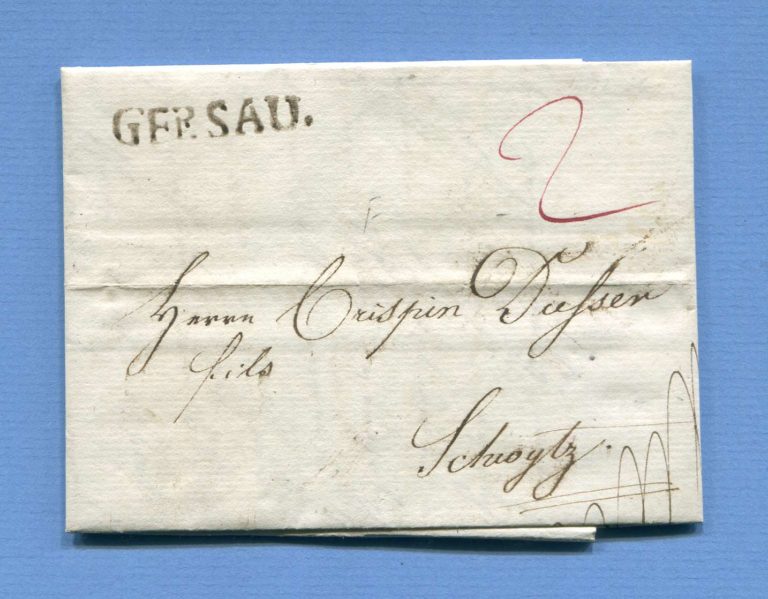 GERSAU.
2
F
Herrn Crispin Dusser
fils
Schwytz.